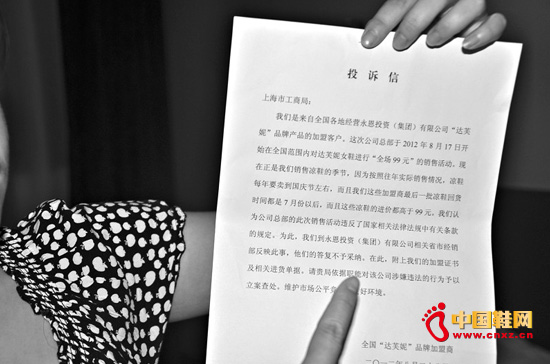 投诉信
上海市工商局：
我们是来自全国各地经营永恩投资（集团）有限公司“达芙
妮”品牌产品的加盟客户。这次公司总部于2012年8月17日开
始在全国范围内对达芙妮女鞋进行“全场99元”的销售活动。现
在正是我们销售凉鞋的季节，因为按照往年实际销售情况，凉鞋
每年要卖到国庆节左右，而且我们这些加盟商最后一批凉鞋回货
时间都是7月份以后，而且这些凉鞋的进价都高于99元。我们认
为公司总部的此次销售活动违反了国家相关法律法规中有关条款
的规定。为此，我们到永恩投资（集团）有限公司相关省市经销
部反映此事，他们的答复不予采纳。在此，附上我们的加盟证书
及相关进货单据。请贵局依据职能对该公司涉嫌违法的行为予以
立案查处、维护市场公平 好环境。
全国“达芙妮”品牌加盟商
二〇一二年八月
中国鞋网
www.cnxz.cn